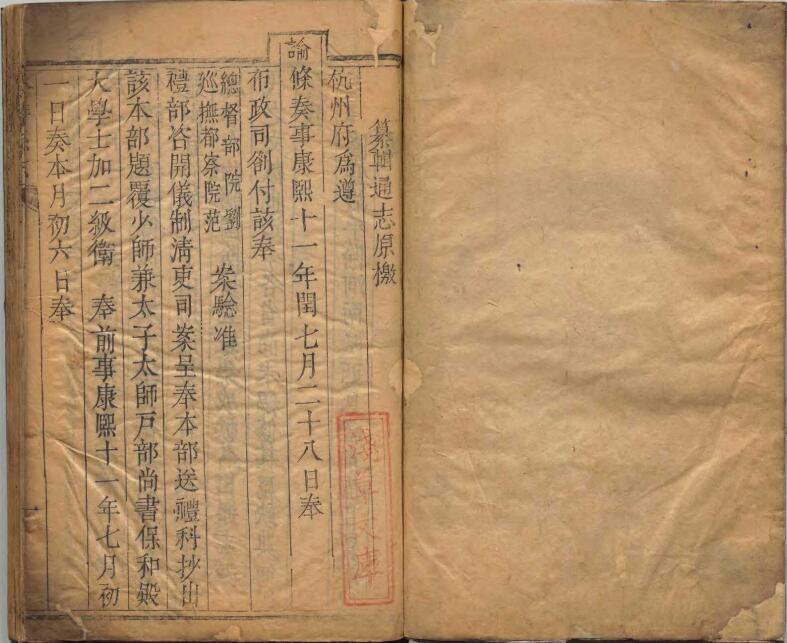 纂輯通志原檄
杭州府爲遵
諭條奏事康熙十一年閏七月二十八日奉
布政司劄付該奉
總督部院劉
巡撫都察院范
案驗准
禮部咨開儀制清吏司案呈奉本部送禮科抄出
該本部題覆少師兼太子太師戶部尚書保和殿
大學士加二級衛 奉前事康熙十一年七月初
一日奏本月初六日奉
淺草文庫
一